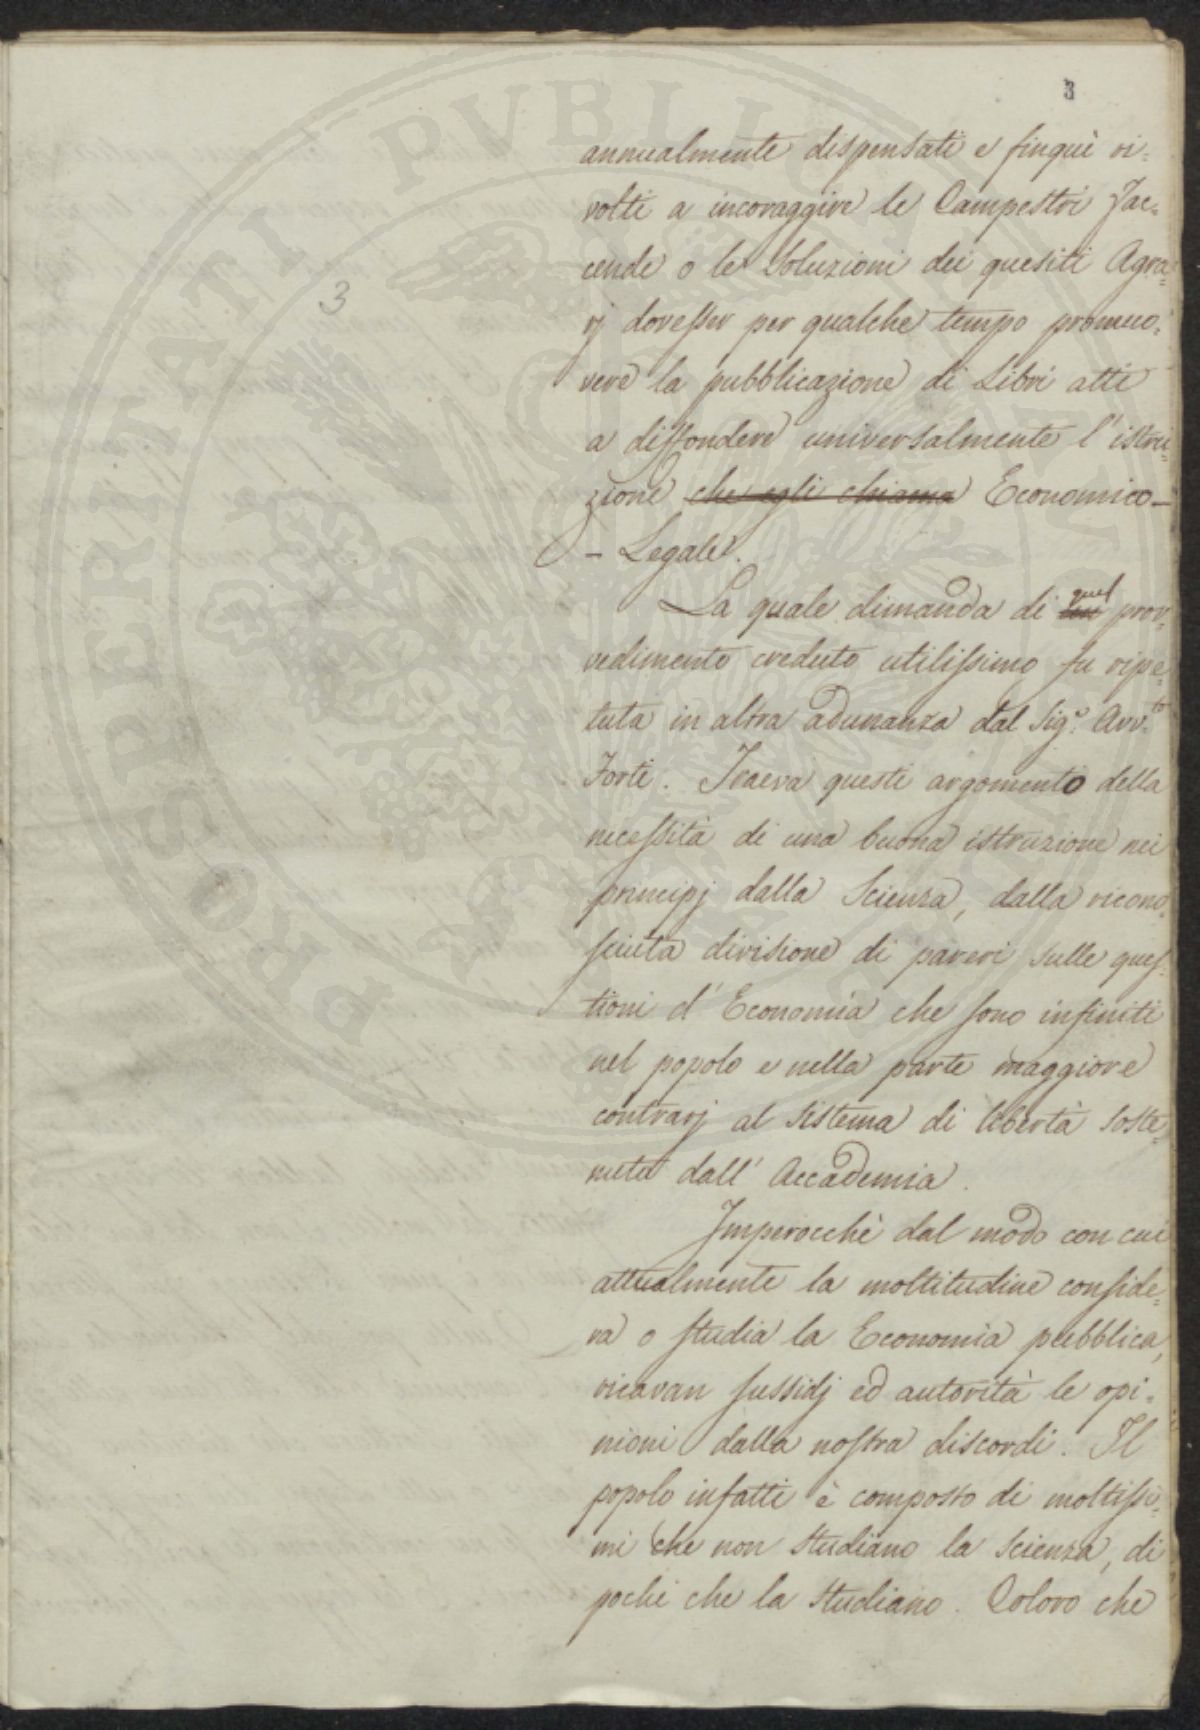 3
3
annualmente dispensati e finquì ri=
volti a incoraggire le Campestri Fac=
cende o le Soluzioni dei quesiti Agra=
rj dovesser per qualche tempo promuo=
vere la pubblicazione di Libri atti
a diffondere universalmente l'istru=
zione che egli chiama Economico-
- Legale.
La quale dimanda di un quel prov=
vedimento creduto utilissimo fu ripe=
tuta in altra adunanza dal Sig.e Avv.to
Forti. Traeva questi argomento della
necessità di una buona istruzione nei
principj dalla Scienza, dalla ricono=
sciuta divisione di pareri sulle ques=
tioni d'Economia che sono infiniti
nel popolo e nella parte maggiore
contrarj al Sistema di libertà soste=
nuta dall'Accademia.
Imperocchè dal modo con cui
attualmente la moltitudine conside=
ra o studia la Economia pubblica,
ricavan sussidj ed autorità le opi=
nioni dalla nostra discordi. Il
popolo infatti è composto di moltissi=
mi che non studiano la Scienza, di
pochi che la studiano. Coloro che
PROSPERITATI PVBLICAE